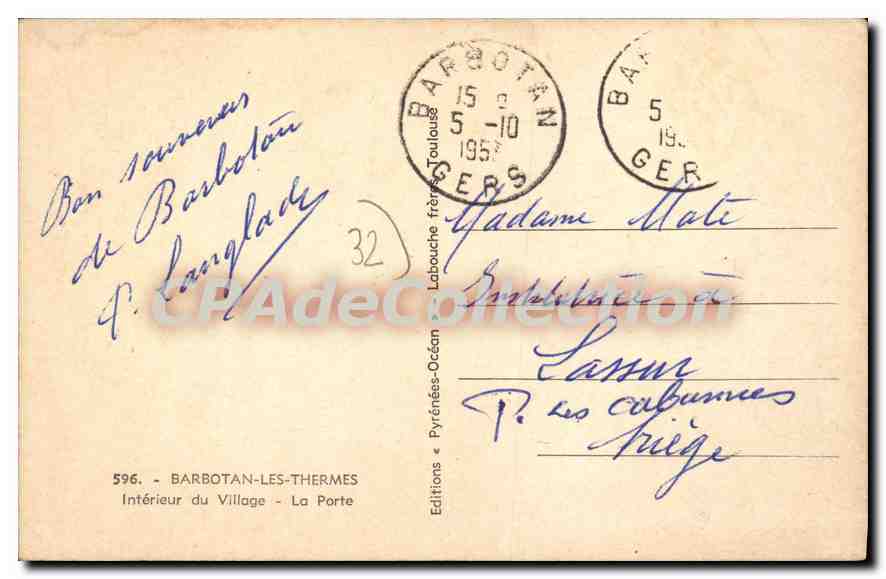 Bon souvenir
de Barbotan
P. Langlade
32
596. - BARBOTAN-LES-THERMES
Intérieur du Village - La Porte
Editions « Pyrénées-Océan » - Labouche frères, Toulouse
BARBOTAN
15
5 -10
1957
GERS
BAR
5
195
GER
Madame Maté
à
Lassur
P. Les cabannes
Ariège
CPAdeCollection